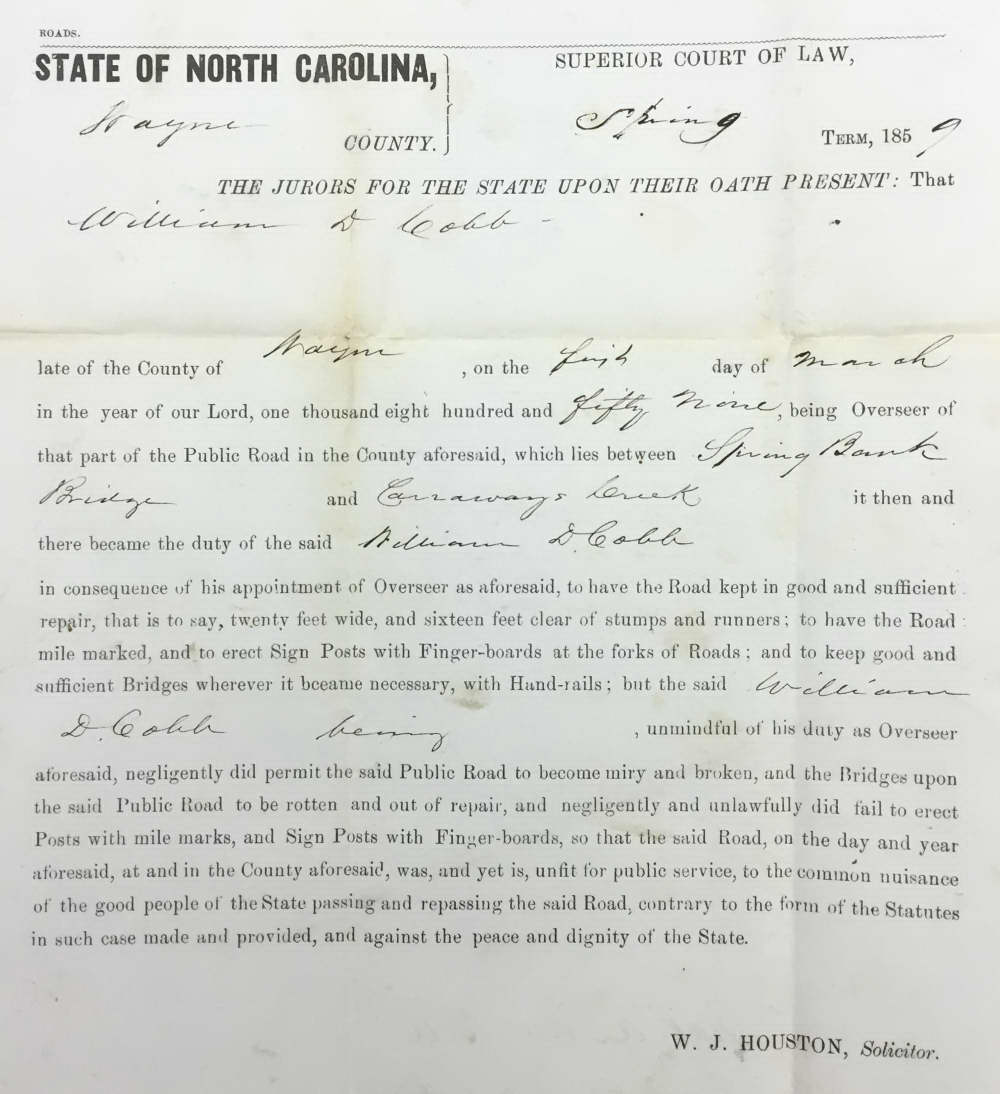 ROADS.
STATE OF NORTH CAROLINA,
SUPERIOR COURT OF LAW,
Wayne COUNTY.
Spring TERM, 1859
THE JURORS FOR THE STATE UPON THEIR OATH PRESENT: That
William D Cobb -
late of the County of Wayne, on the first day of March
in the year of our Lord, one thousand eight hundred and fifty Nine, being Overseer of
that part of the Public Road in the County aforesaid, which lies between Spring Bank
Bridge and Carraways Creek it then and
there became the duty of the said William D. Cobb
in consequence of his appointment of Overseer as aforesaid, to have the Road kept in good and sufficient
repair, that is to say, twenty feet wide, and sixteen feet clear of stumps and runners; to have the Road
mile marked, and to erect Sign Posts with Finger-boards at the forks of Roads; and to keep good and
sufficient Bridges wherever it bceame necessary, with Hand-rails; but the said William
D. Cobb being, unmindful of his duty as Overseer
aforesaid, negligently did permit the said Public Road to become miry and broken, and the Bridges upon
the said Public Road to be rotten and out of repair, and negligently and unlawfully did fail to erect
Posts with mile marks, and Sign Posts with Finger-boards, so that the said Road, on the day and year
aforesaid, at and in the County aforesaid, was, and yet is, unfit for public service, to the common nuisance
of the good people of the State passing and repassing the said Road, contrary to the form of the Statutes
in such case made and provided, and against the peace and dignity of the State.
W. J. HOUSTON, Solicitor.